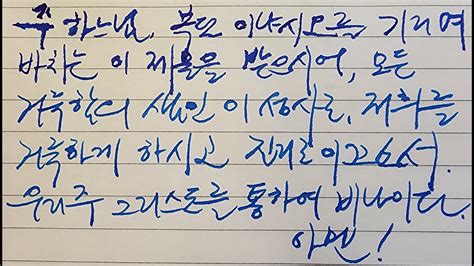 주 하느님, 복된 이냐시오를 기리며
바치는 이 제물을 받으시어, 모든
거룩함의 샘인 이 성사로, 저희를
거룩하게 하시고 진리로 이끄소서.
우리주 그리스도를 통하여 비나이다.
아멘!